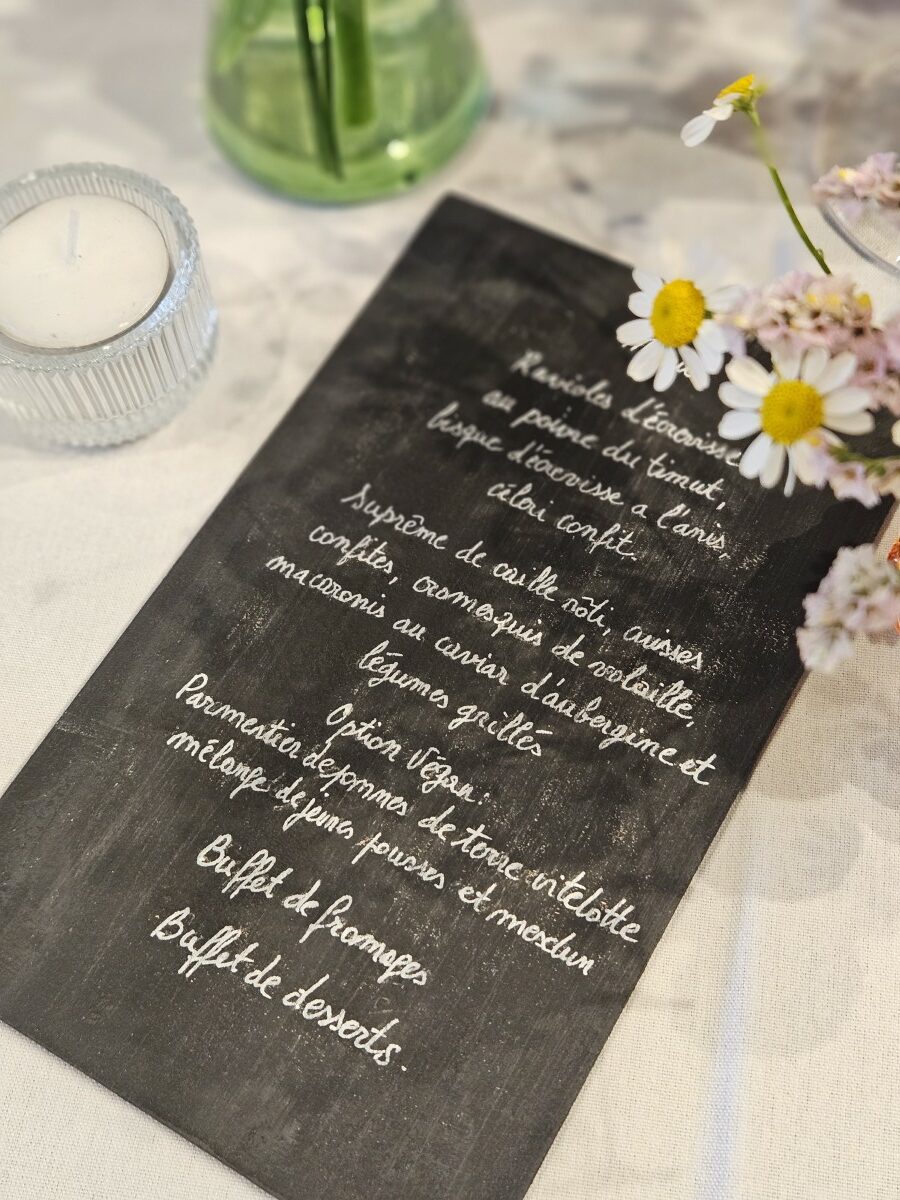 Ravioles d'écrevisse
au poivre du timut,
bisque d'écrevisse a l'anis,
céleri confit.
Suprême de caille rôti, cuisses
confites, cromesquis de volaille,
macaronis au caviar d'aubergine et
légumes grillés
Option Végan:
Parmentier de pommes de terre vitelotte
mélange de jeunes pousses et mesclun
Buffet de fromages
Buffet de desserts.